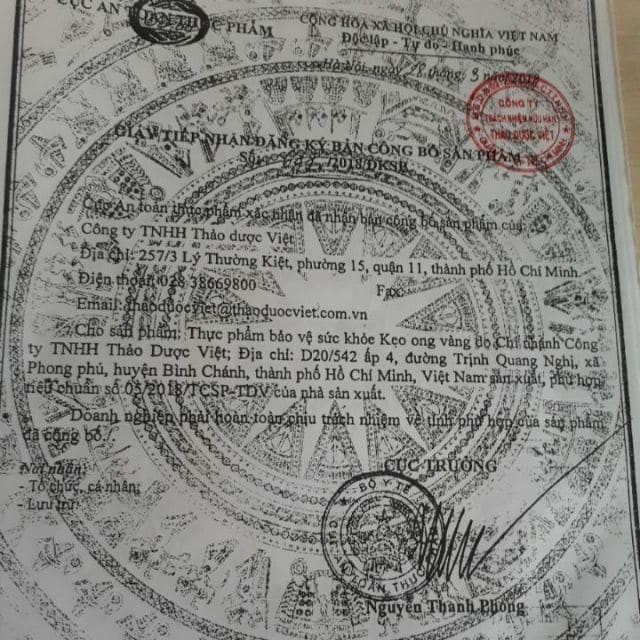 CỤC AN
C PHẨM
CỘNG HÒA XÃ HỘI CHỦ NGHĨA VIỆT NAM
Độc lập - Tự do - Hạnh phúc
Hà Nội, ngày tháng 3 năm 2018
CÔNG TY
TRÁCH NHIỆM HỮU HẠN
THẢO DƯỢC VIỆT
GIẤY TIẾP NHẬN ĐĂNG KÝ BẢN CÔNG BỐ SẢN PHẨM
Số: /2018/ĐKSP
Cục An toàn thực phẩm xác nhận đã nhận bản công bố sản phẩm của:
Công ty TNHH Thảo dược Việt
Địa chỉ: 257/3 Lý Thường Kiệt, phường 15, quận 11, thành phố Hồ Chí Minh.
Điện thoại: 028 38669800 Fax:
Email: thaoduocviet@thaoduocviet.com.vn
Cho sản phẩm: Thực phẩm bảo vệ sức khỏe Kẹo ong vàng do Chi nhánh Công
ty TNHH Thảo Dược Việt; Địa chỉ: D20/542 ấp 4, đường Trịnh Quang Nghị, xã
Phong phú, huyện Bình Chánh, thành phố Hồ Chí Minh, Việt Nam sản xuất, phù hợp
tiêu chuẩn số 05/2018/TCSP-TDV của nhà sản xuất.
Doanh nghiệp phải hoàn toàn chịu trách nhiệm về tính phù hợp của sản phẩm
đã công bố./.
Nơi nhận:
- Tổ chức, cá nhân;
- Lưu trữ.
CỤC TRƯỞNG
BỘ Y TẾ
Nguyễn Thanh Phong